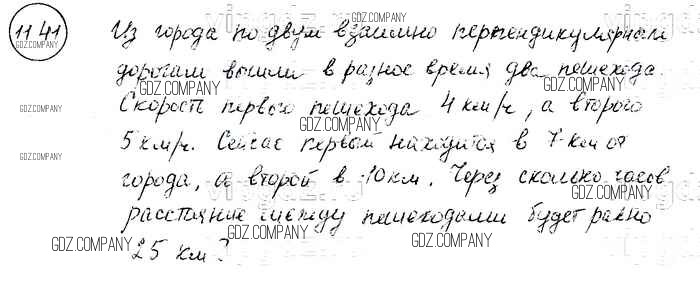 1141 Из города по двум взаимно перпендикулярным
дорогам вышли в разное время два пешехода.
Скорость первого пешехода 4 км/ч, а второго
5 км/ч. Сейчас первый находится в 7 км от
города, а второй в 10 км. Через сколько часов
расстояние между пешеходами будет равно
25 км?
GDZ.COMPANY
GDZ.COMPANY
GDZ.COMPANY
GDZ.COMPANY
GDZ.COMPANY
GDZ.COMPANY
GDZ.COMPANY
GDZ.COMPANY
GDZ.COMPANY
GDZ.COMPANY
GDZ.COMPANY
GDZ.COMPANY
GDZ.COMPANY